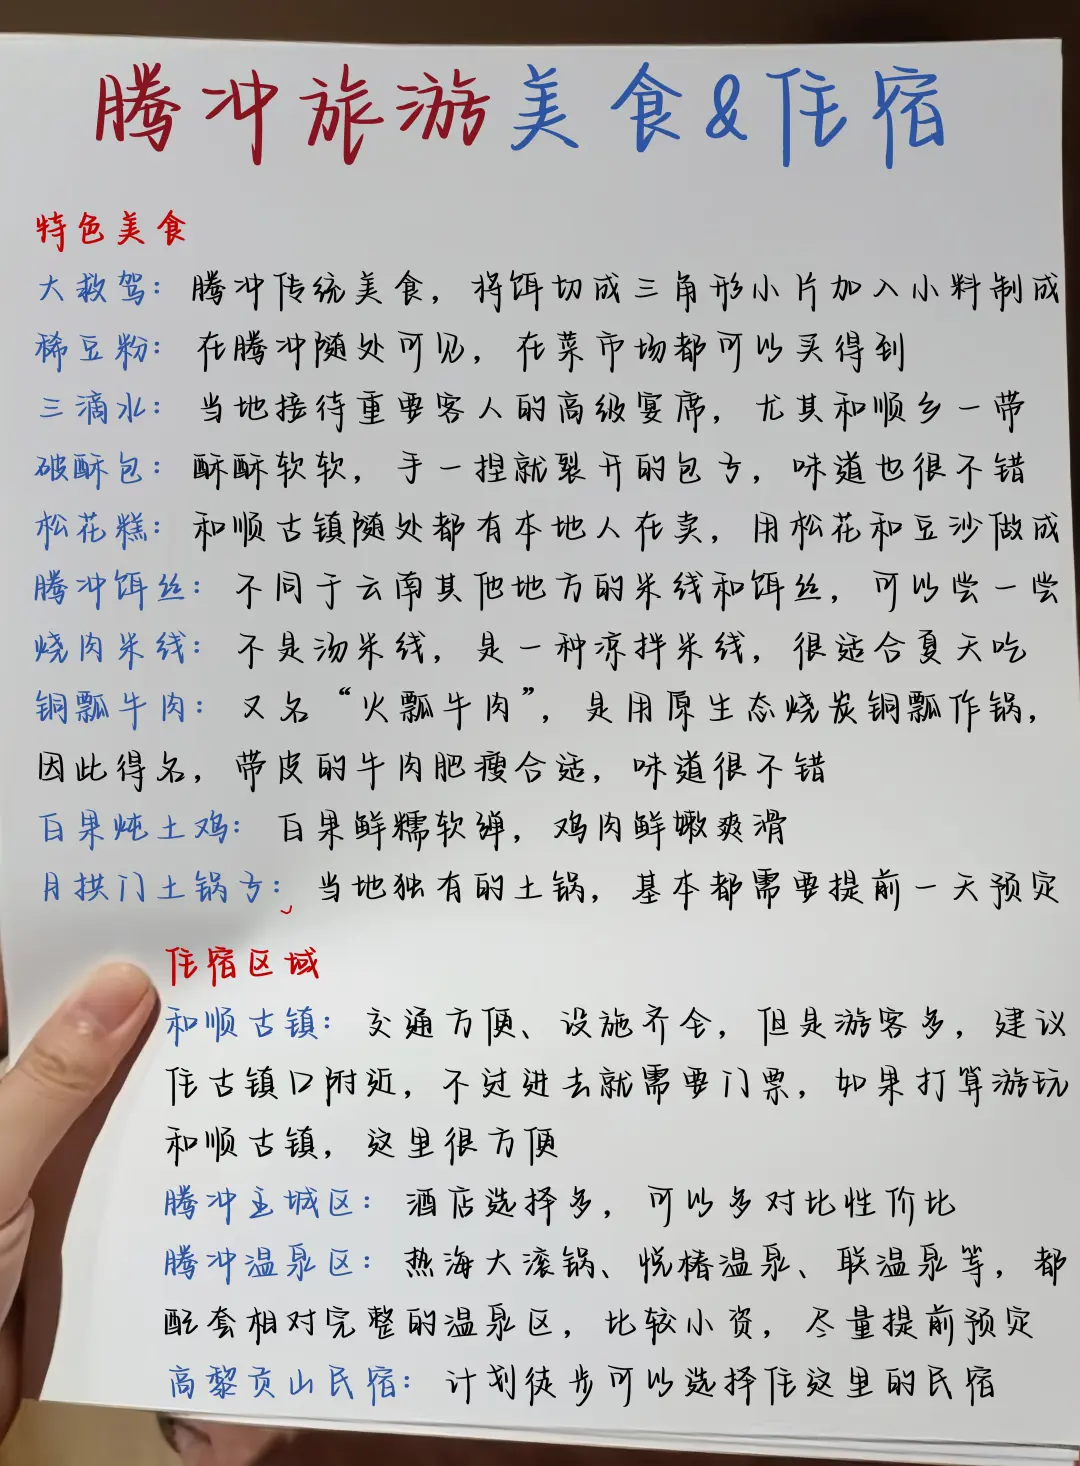 腾冲旅游美食&住宿
特色美食
大救驾：腾冲传统美食，将饵切成三角形小片加入小料制成
稀豆粉：在腾冲随处可见，在菜市场都可以买得到
三滴水：当地接待重要客人的高级宴席，尤其和顺乡一带
破酥包：酥酥软软，手一捏就裂开的包方，味道也很不错
松花糕：和顺古镇随处都有本地人在卖，用松花和豆沙做成
腾冲饵丝：不同于云南其他地方的米线和饵丝，可以尝一尝
烧肉米线：不是汤米线，是一种凉拌米线，很适合夏天吃
铜瓢牛肉：又名“火瓢牛肉”，是用原生态烧炭铜瓢作锅，
因此得名，带皮的牛肉肥瘦合适，味道很不错
百果炖土鸡：百果鲜糯软弹，鸡肉鲜嫩爽滑
月拱门土锅方：当地独有的土锅，基本都需要提前一天预定
住宿区域
和顺古镇：交通方便、设施齐全，但是游客多，建议
住古镇口附近，不过进去就需要门票，如果打算游玩
和顺古镇，这里很方便
腾冲主城区：酒店选择多，可以多对比性价比
腾冲温泉区：热海大滚锅、悦椿温泉、联温泉等，都
配套相对完整的温泉区，比较小资，尽量提前预定
高黎贡山民宿：计划徒步可以选择住这里的民宿